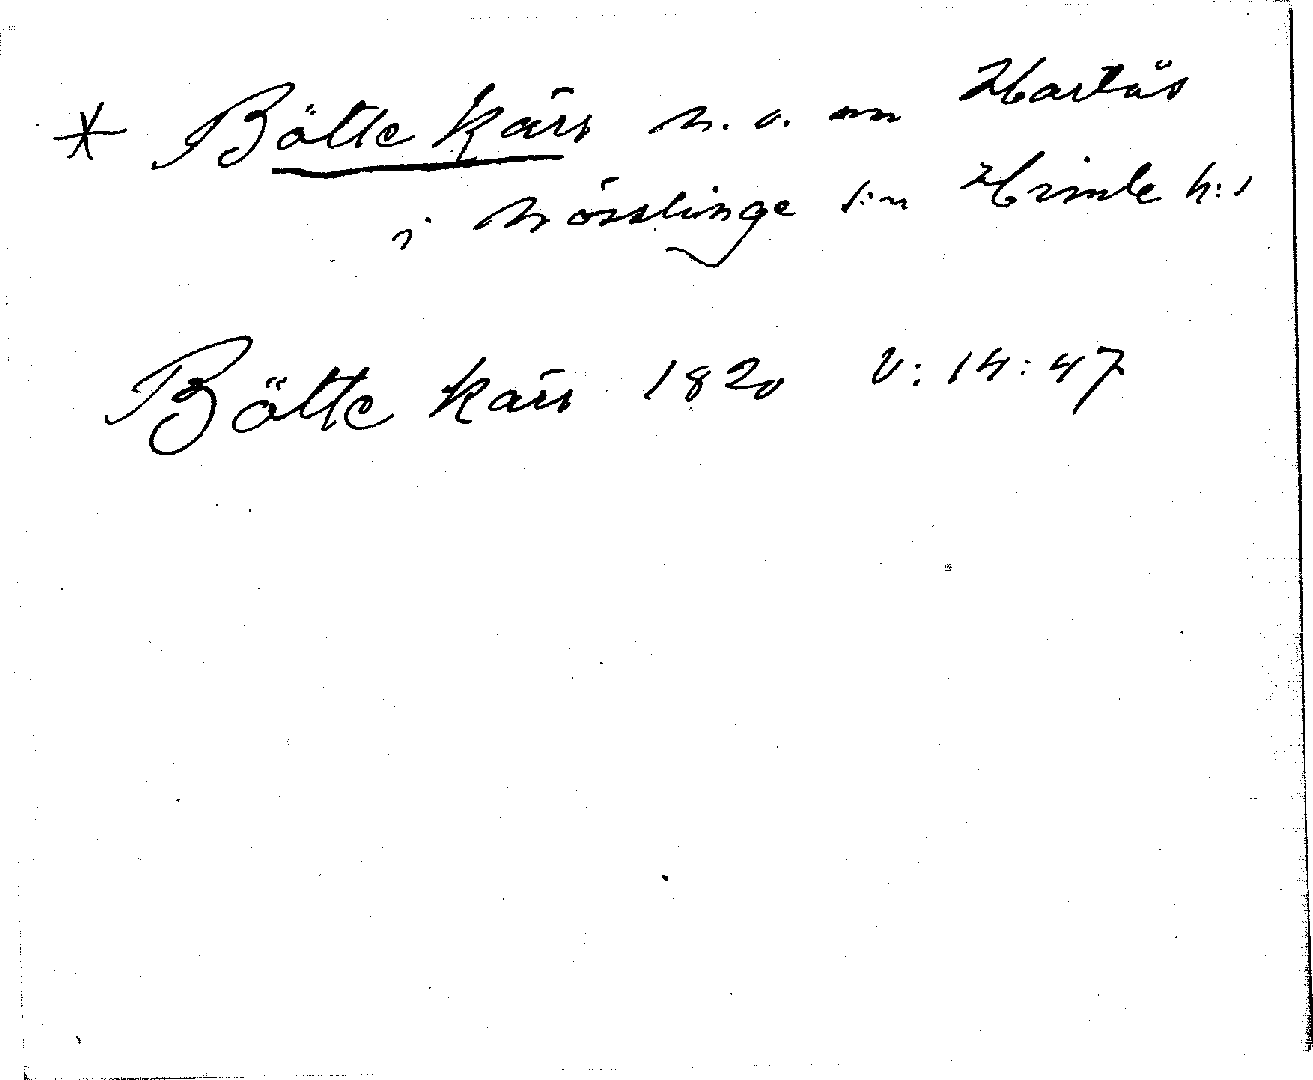 * Bötte kärr n.o. om Hartås
i Nösslinge sn Himle h:d
Bötte kärr 1820 V:14:47